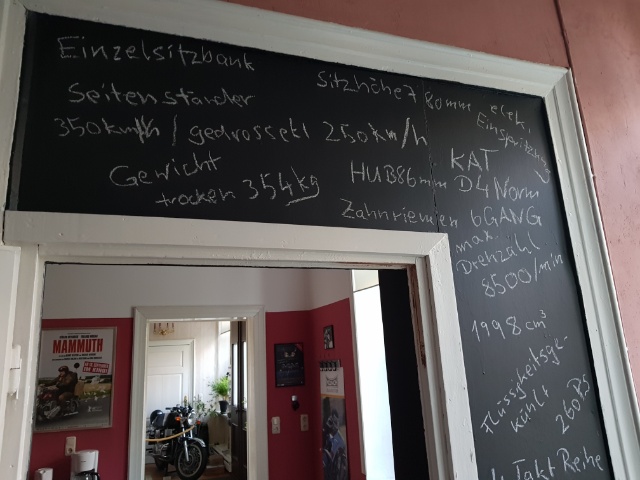 Einzelsitzbank
Seitenständer
350km/h / gedrosselt 250km/h
Gewicht
trocken 354kg
Sitzhöhe 780mm
elek.
Einspritzung
KAT
HUB 86mm
D4 Norm
Zahnriemen
6GANG
max.
Drehzahl
8500/min
1998 cm³
Flüssigkeitsge-
kühlt
260PS
Takt Reihe
MAMMUTH